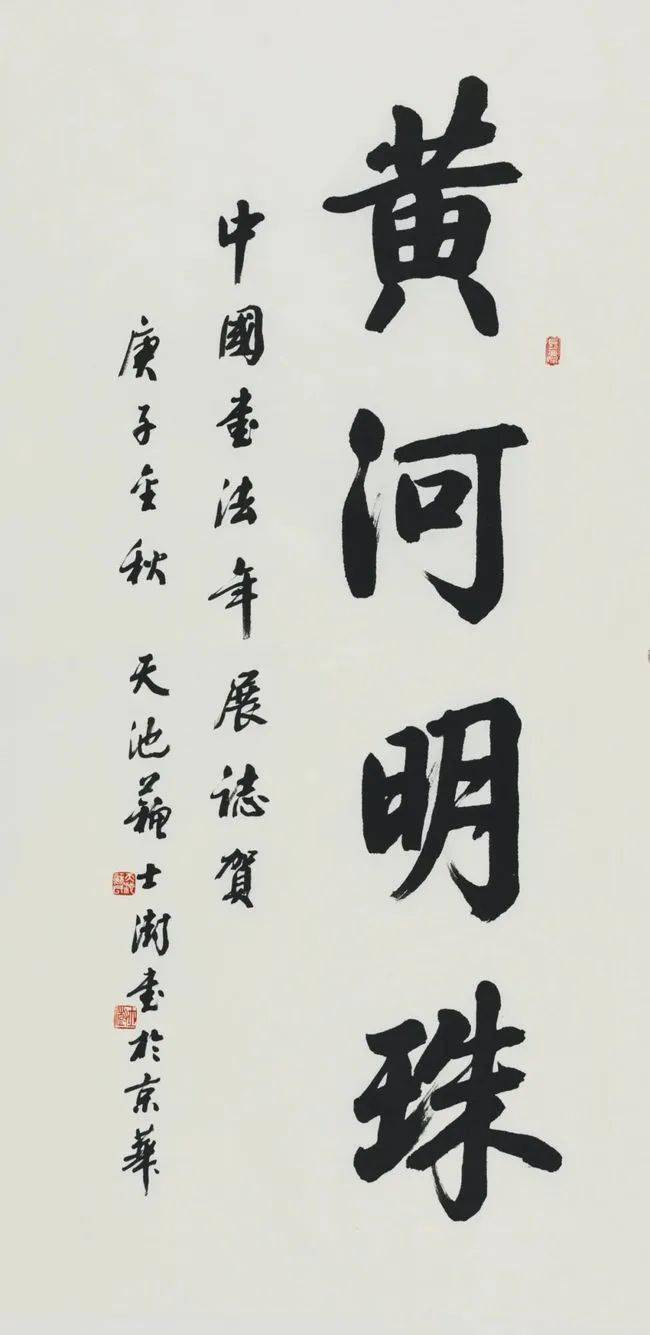 黄河明珠
中國書法年展誌賀
庚子金秋 天池蘇士澍書於京華